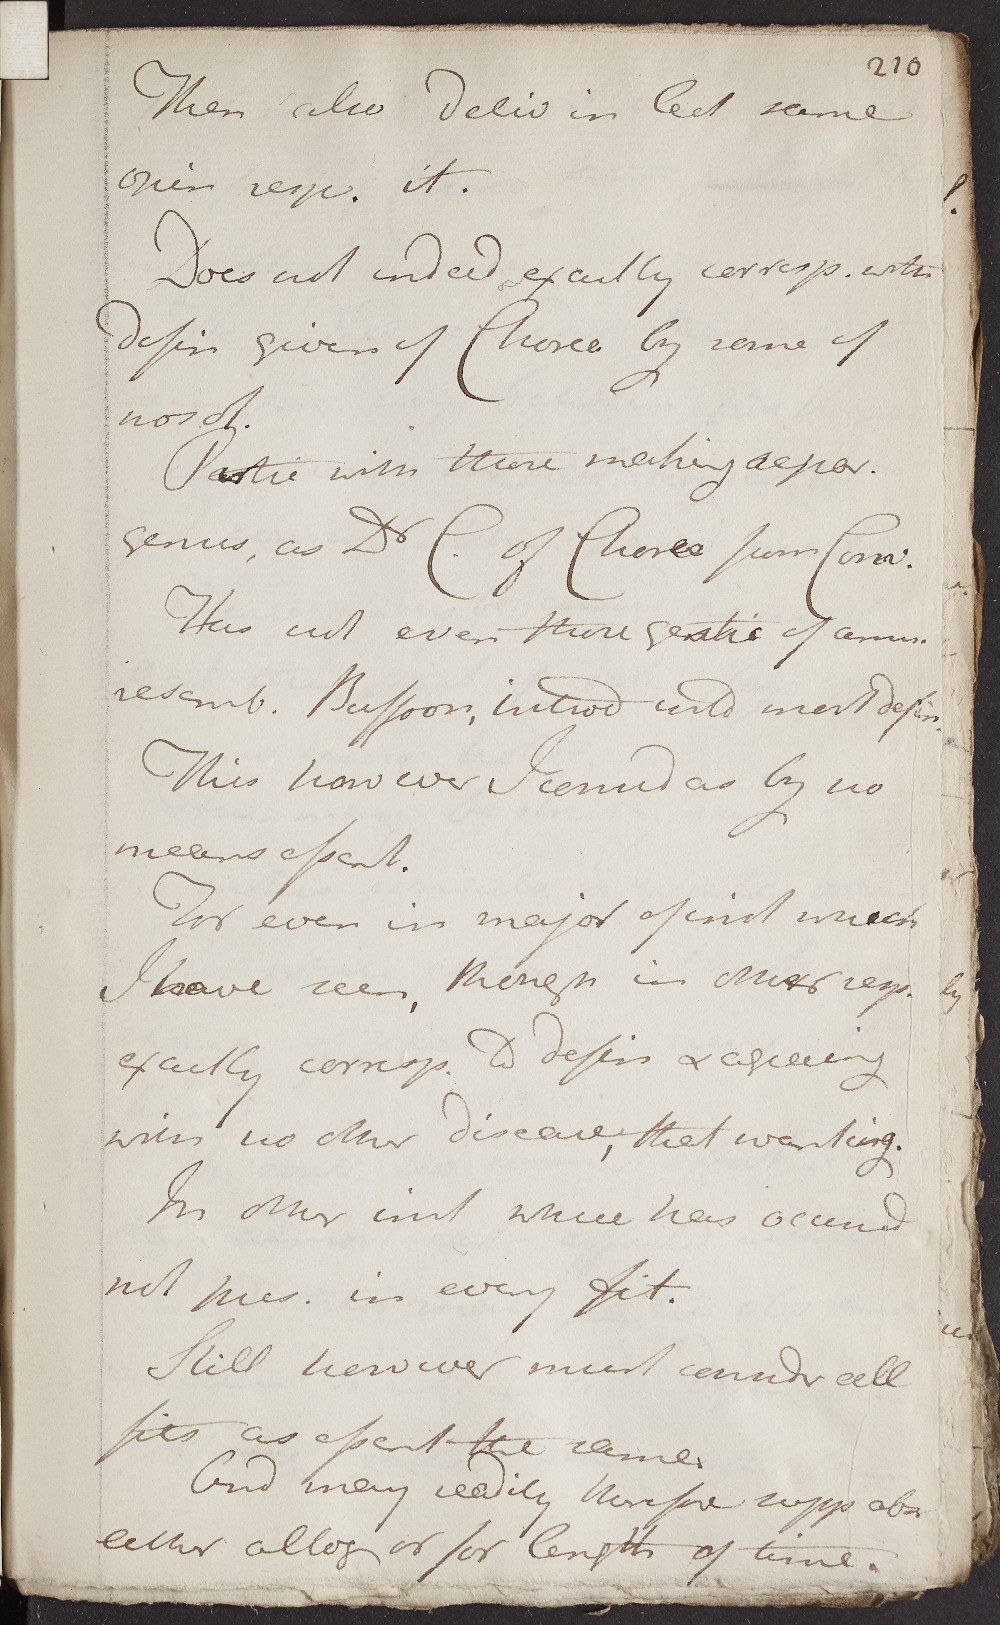 210
Then also deliv in lect some
opin resp. it.
Does not indeed exactly corresp. with
defin given of Chorea by some of
nosol.
Partic with those making separ.
genus, as Dr C. of Chorea from Conv.
Has not even those gestic of
resemb. Buffoon, introd into most defin.
This however I consid as by no
means essent.
For even in major of inst which
I have seen, though in other resp.
exactly corresp. to defin & agreeing
with no other disease, that wanting.
In other inst where has occurred
not pres. in every fit.
Still however must consider all
fits as essent the same.
And may readily therefore supp abs
either altog or for length of time.